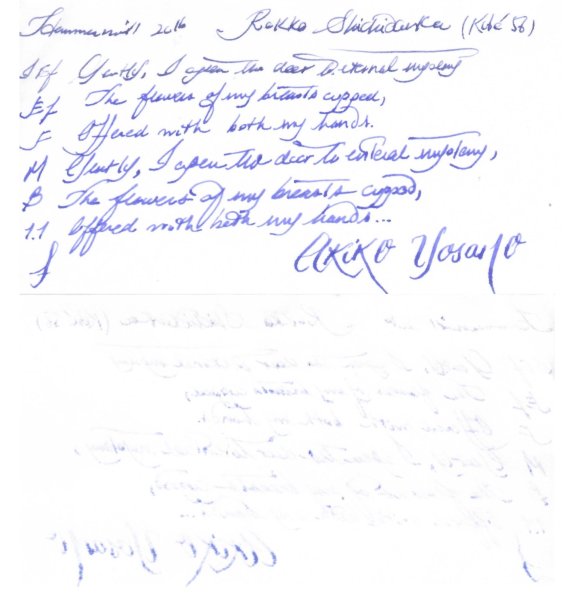 Hammermill 2016 Rokko (Kobé 56)
Gently, I open the door to eternal mystery
Ef The flowers of my breasts cupped,
F Offered with both my hands.
M Gently, I open the door to eternal mystery,
B The flowers of my breasts cupped,
1.1 Offered with both my hands...
Akiko Yosano